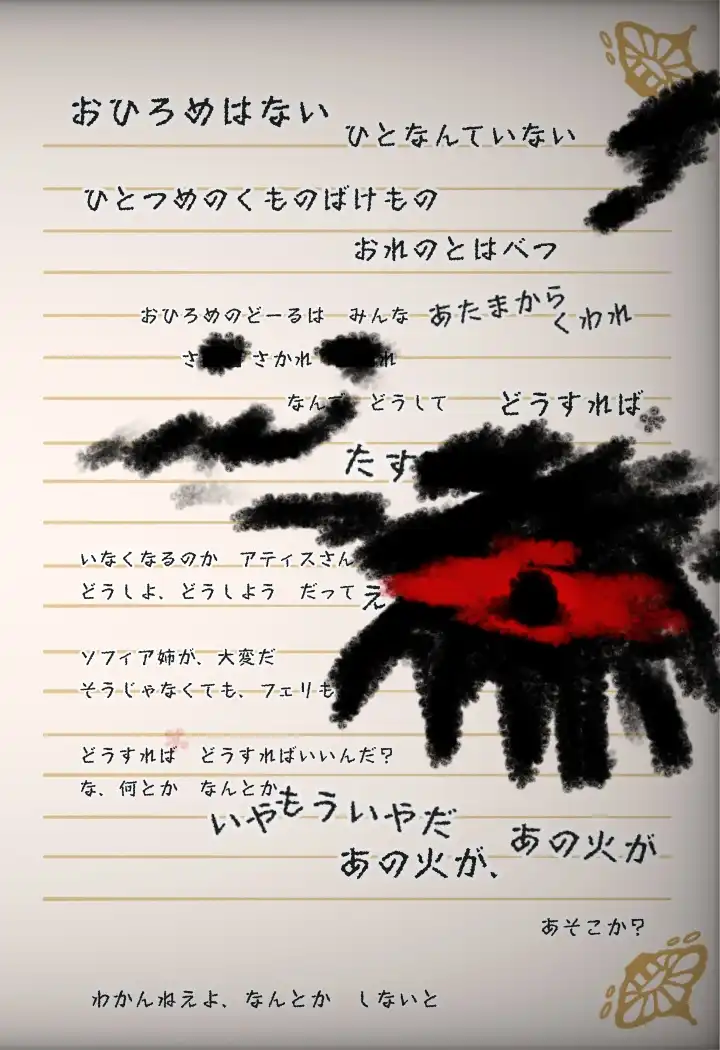 おひろめはない
ひとなんていない
ひとつめのくものばけもの
おれのとはべつ
おひろめのどーるは　みんな　あたまから
くわれ
さ　さかれ　れ
なん　どうして　どうすれば
たす
いなくなるのか　アティスさん
どうしよ、どうしよう　だってえ
ソフィア姉が、大変だ
そうじゃなくても、フェリも
どうすれば　どうすればいいんだ?
な、何とか　なんとか
いやもういやだ
あの火が、
あの火が
あそこか?
わかんねえよ、なんとか　しないと